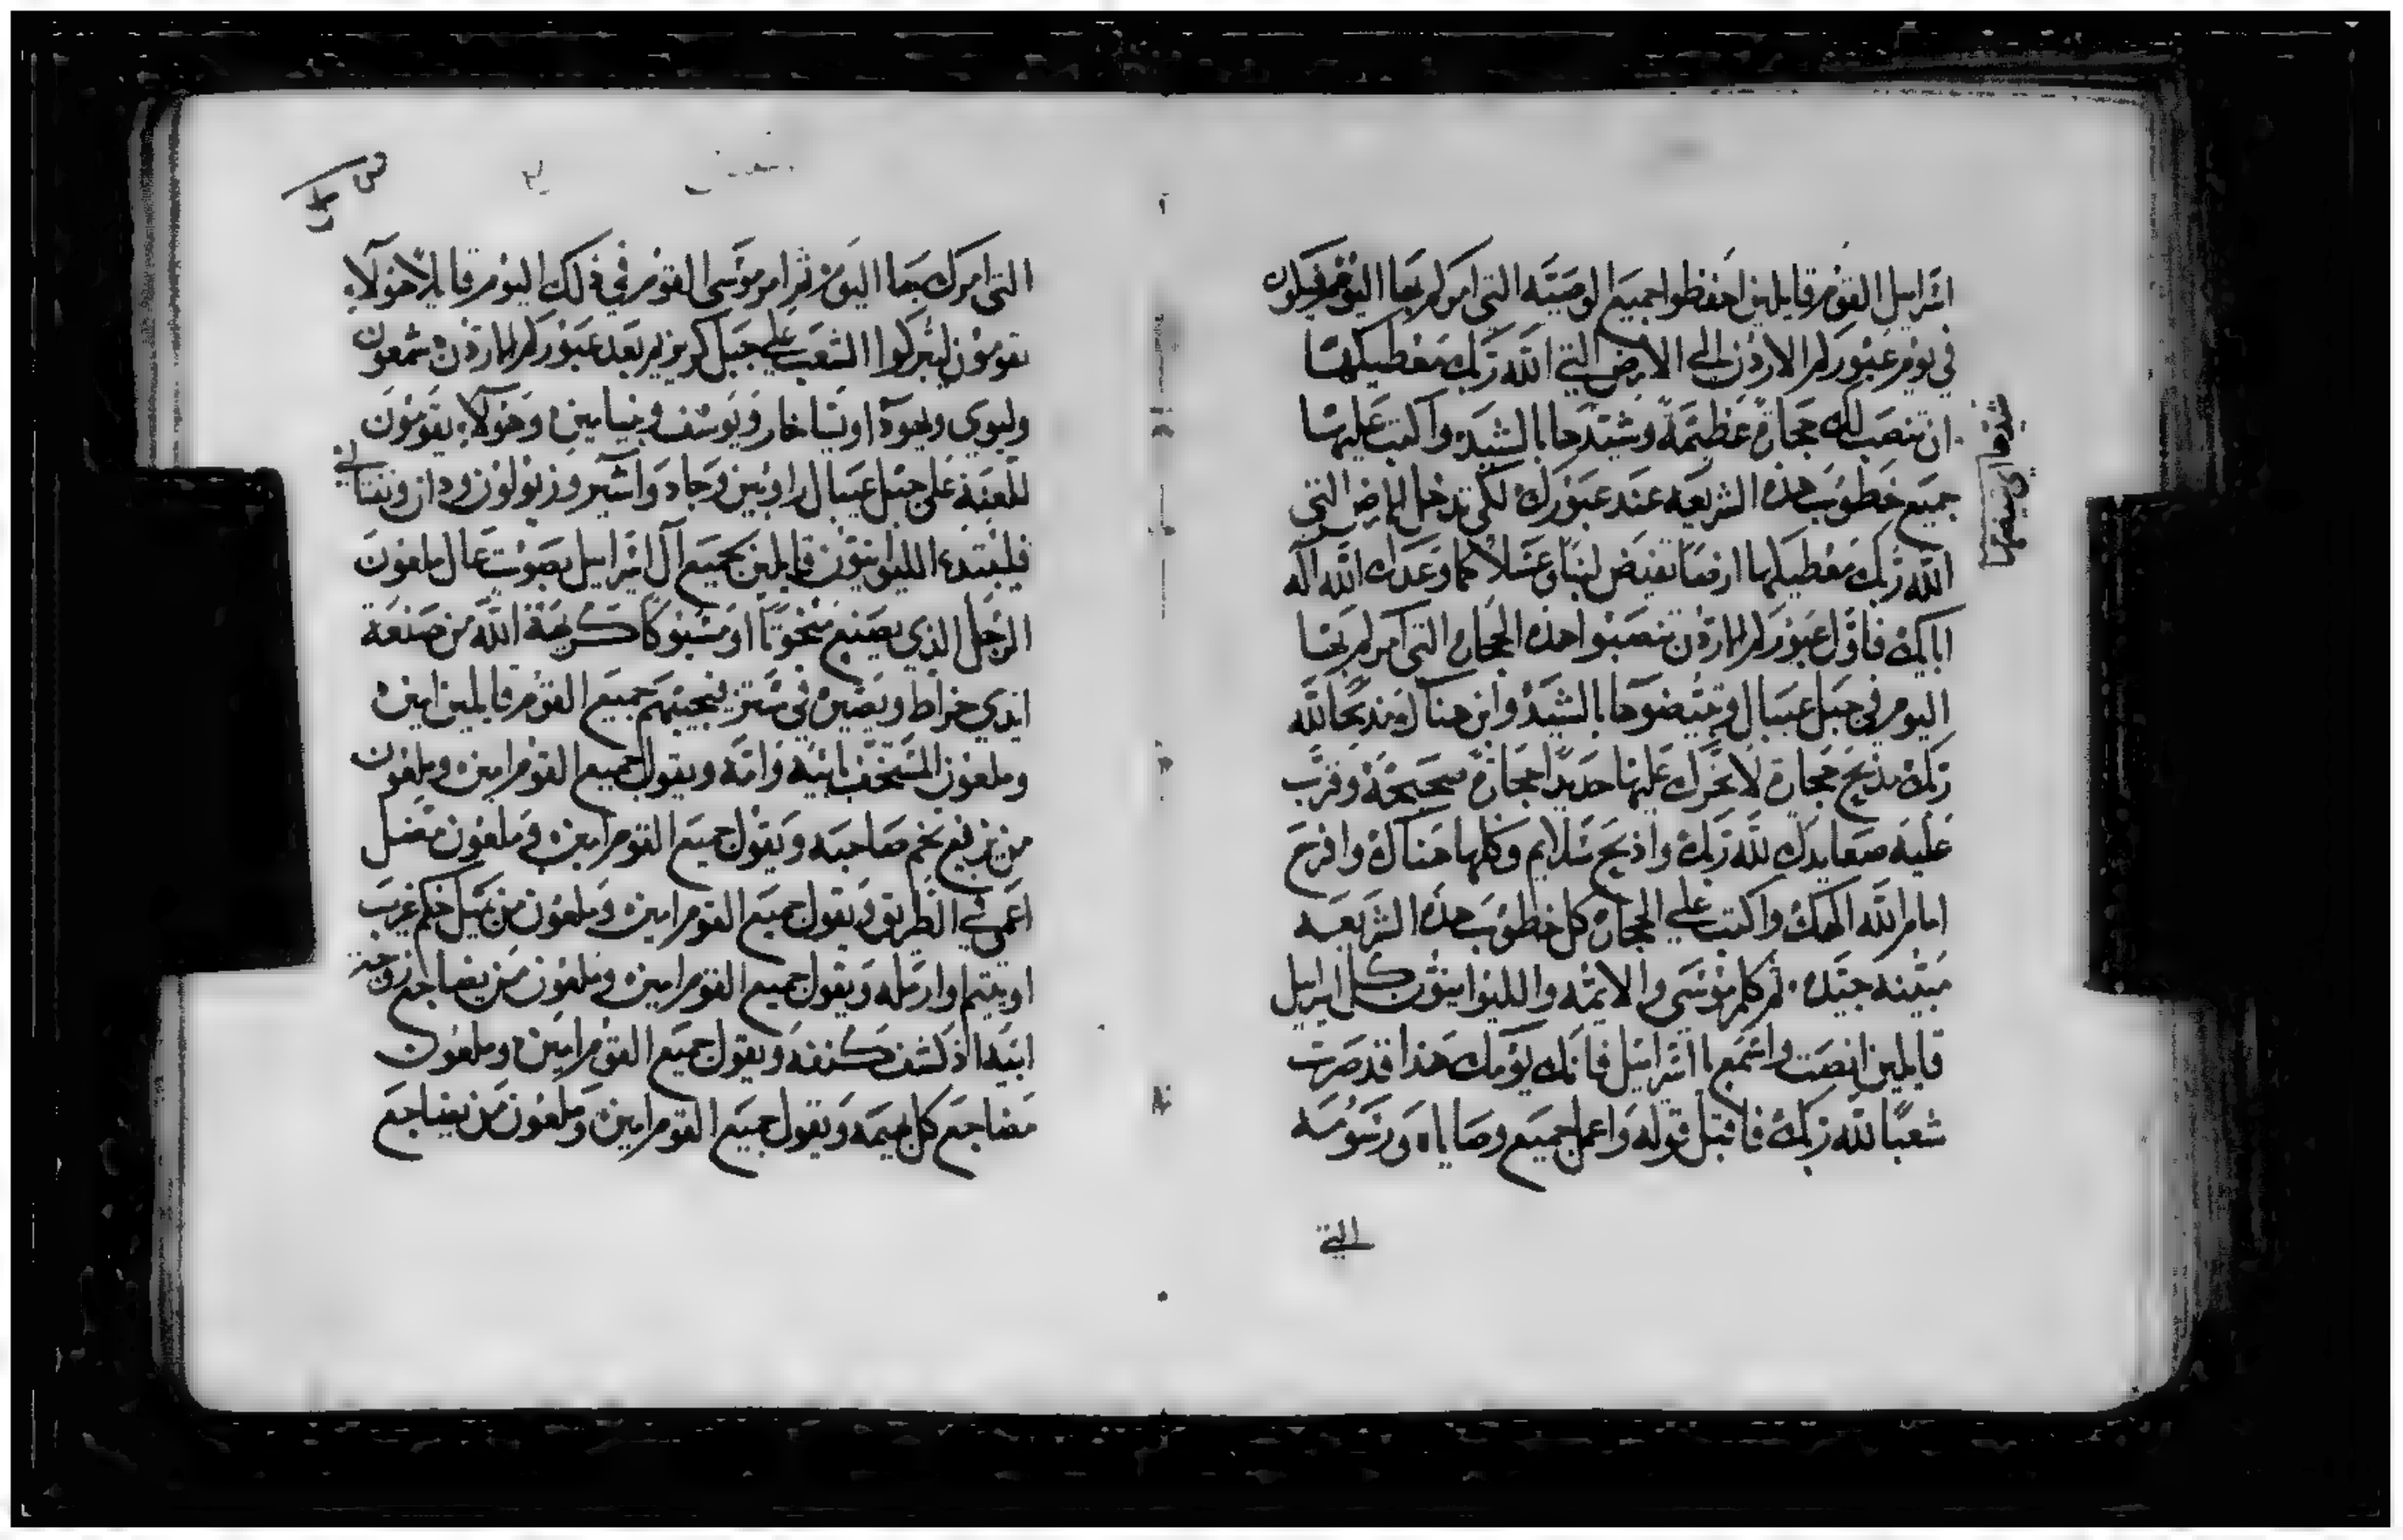 اسراييل القوم قايلين احفظوا جميع الوصيه التي امركم بها اليوم فيكون
في يوم عبوركم الاردن الى الارض التي الله ربك معطيكها
ان تنصب لك حجارة عظيمة وشيدها بالشيد واكتب عليها
جميع خطوب هذه الشريعه عند عبورك لكي تدخل الارض التي
الله ربك معطيكها ارضا تفيض لبنا وعسلا كما وعدك الله اله
ابايك فاول عبوركم الاردن تنصبوا هذه الحجارة التي امركم بها
اليوم في جبل عيبال وتبيضوها بالشيد وابن هناك مذبحا لله
ربك مذبح حجارة لا تحرك عليها حديدا حجارة صحيحة وقرب
عليه صعايدك لله ربك واذبح سلايم وكلها هناك وافرح
امام الله الهك واكتب على الحجارة كل خطوب هذه الشريعه
مبينه جيده ثم كلم موسى والايمه والليوانيون كل اسراييل
قايلين انصت واسمع يا اسراييل فانك يومك هذا قد صرت
شعبا لله ربك فاقبل قوله واعمل جميع وصاياه ورسومه
التي
التي امرك بها اليوم ثم امر موسى القوم في ذلك اليوم قايلا هولاء
يقومون ليبركوا الشعب على جبل كريزيم بعد عبوركم الاردن شمعون
وليوي ويهوذه اويساخار ويوسف وبنيامين وهولاء يقومون
للعنة على جبل عيبال راوبين وجاد واشير وزبولون ودان ونفتالي
فليبتدء الليوانيون قايلين لجميع ال اسراييل بصوت عال ملعون
الرجل الذي يصنع منحوتا او مسبوكا كريهة الله من صنعة
ايدي خراط ويصيره في ستر فيجيبهم جميع القوم قايلين امين
وملعون المستخف بابيه وامه ويقول جميع القوم امين وملعون
من يرفع تخم صاحبه ويقول جميع القوم امين وملعون مضل
اعمى في الطريق ويقول جميع القوم امين وملعون من يميل حكم غريب
او يتيم او ارمله ويقول جميع القوم امين وملعون من يضاجع زوجة
ابيه اذ كشف كنفه ويقول جميع القوم امين وملعون
مضاجع كل بهيمه ويقول جميع القوم امين وملعون من يضاجع